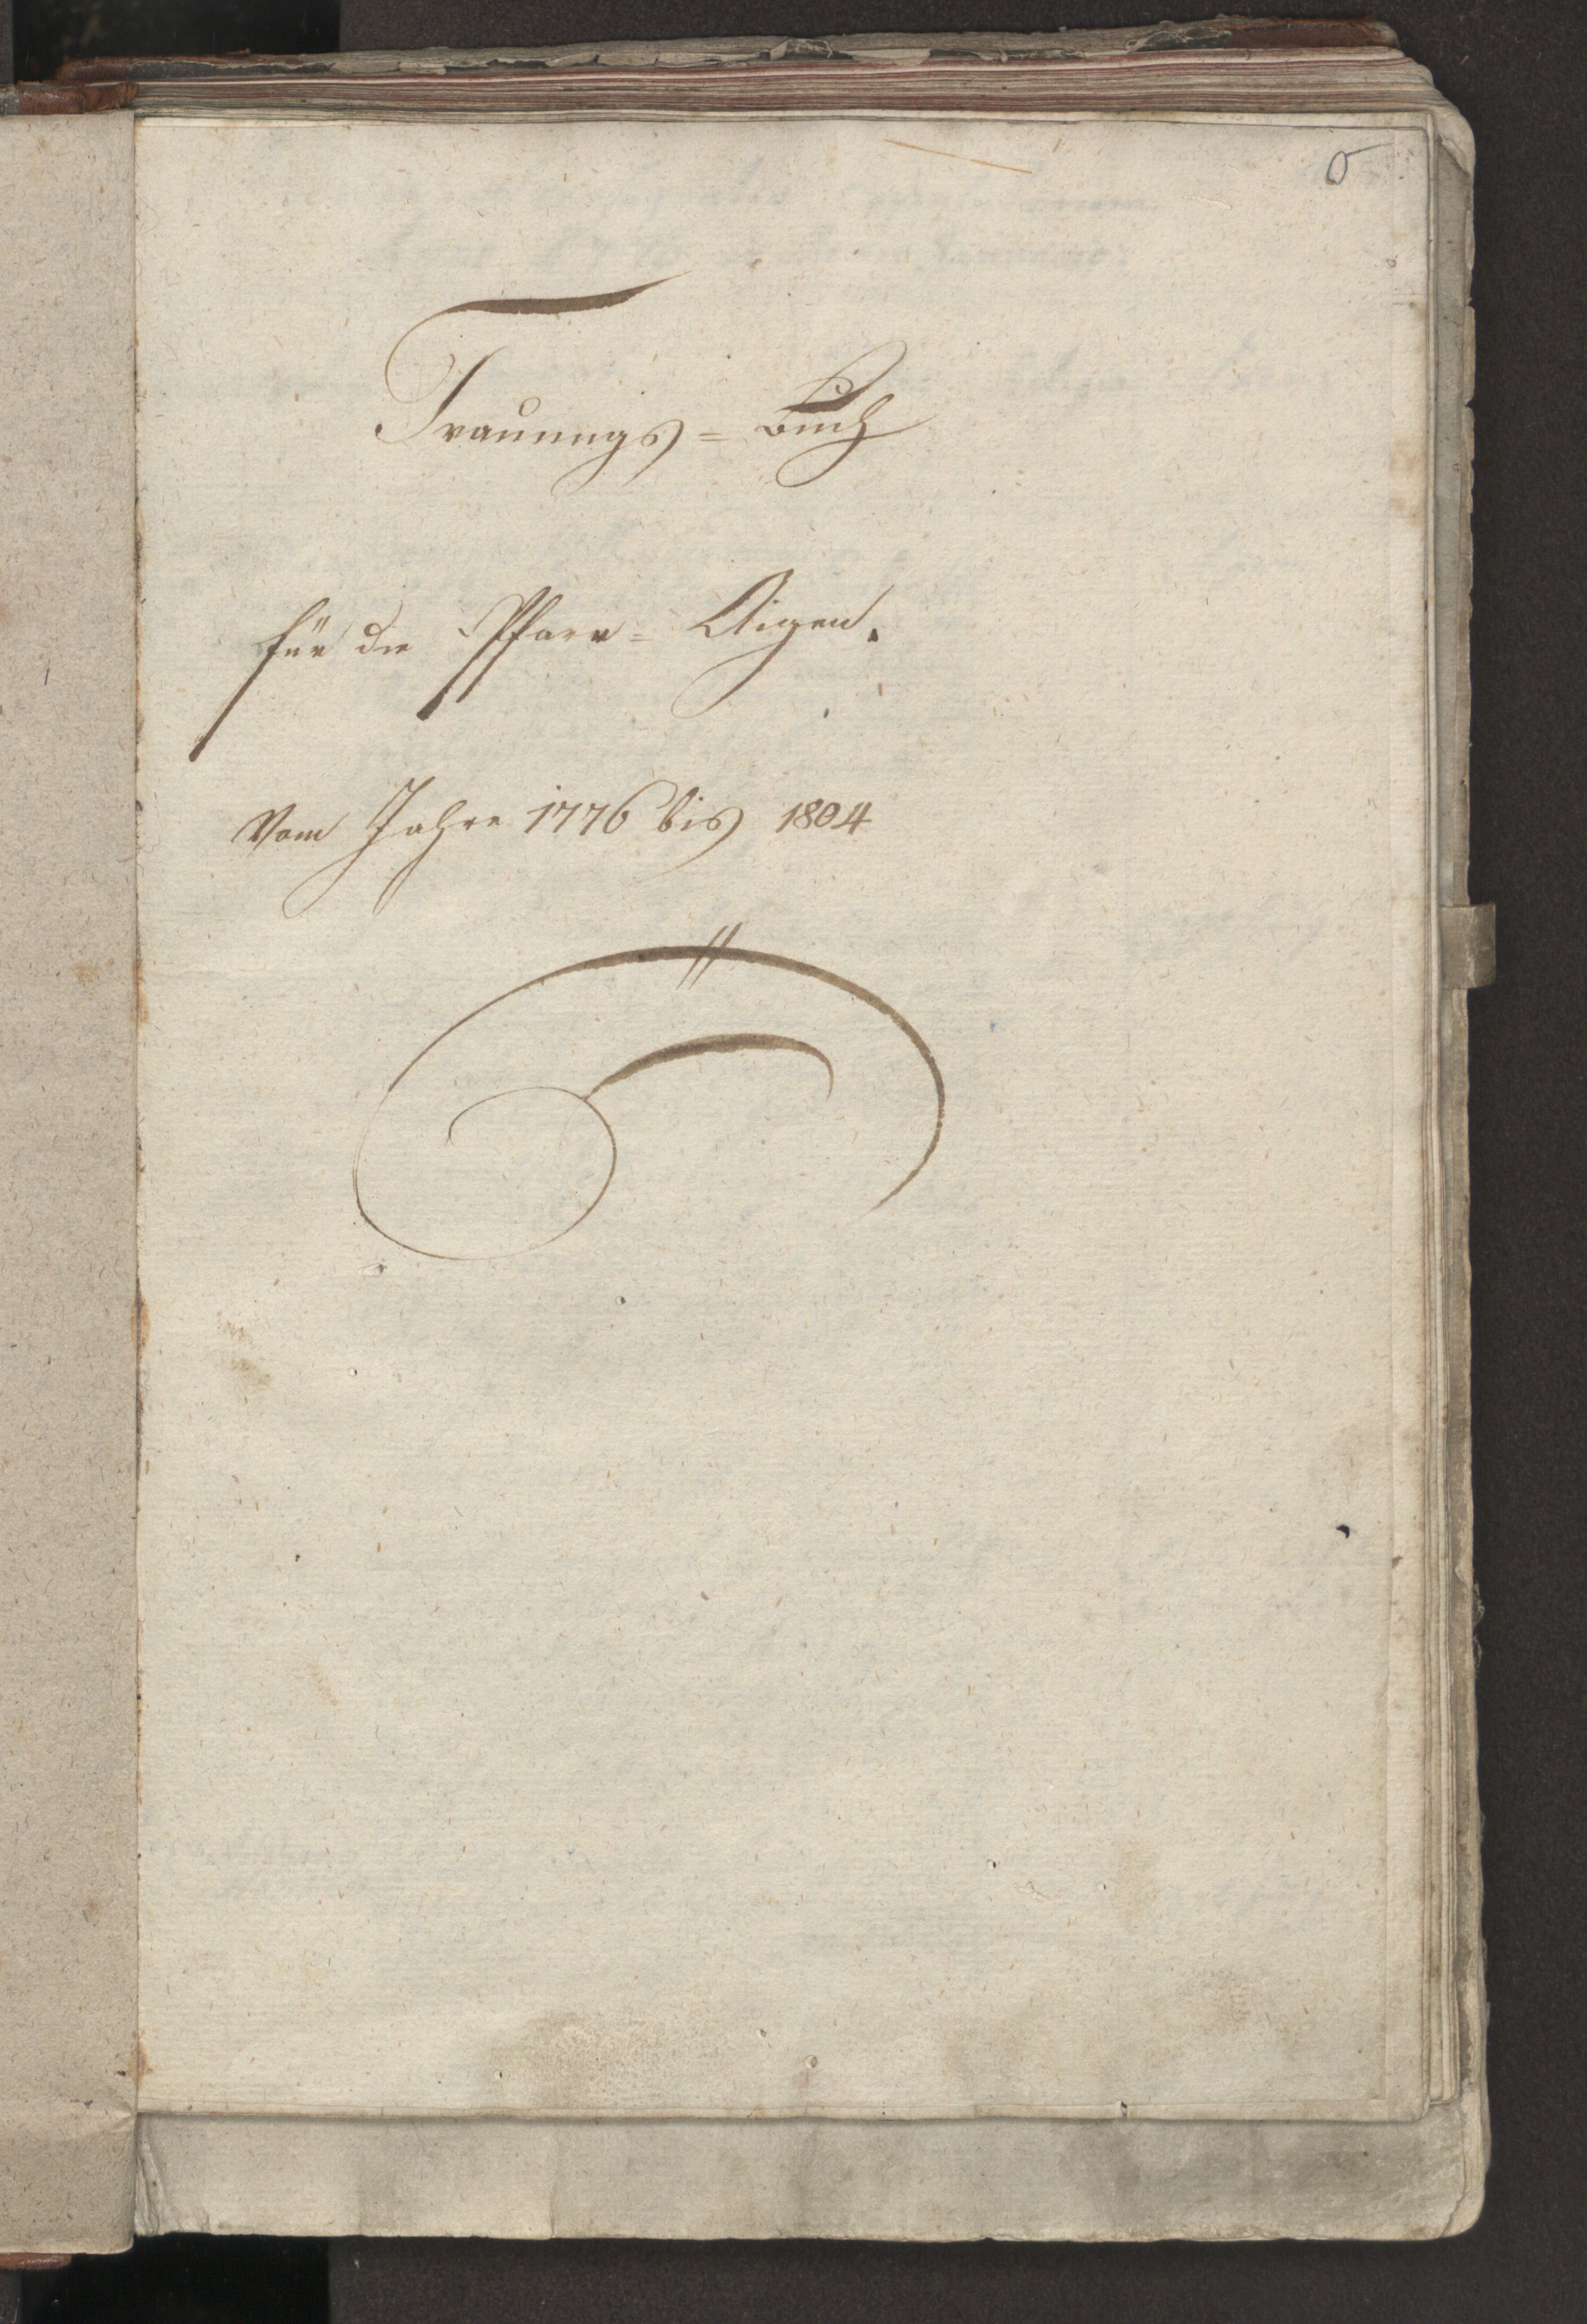 0
Trauungs=Buch
für die Pfarr=Aigen.
Vom Jahre 1776 bis 1804